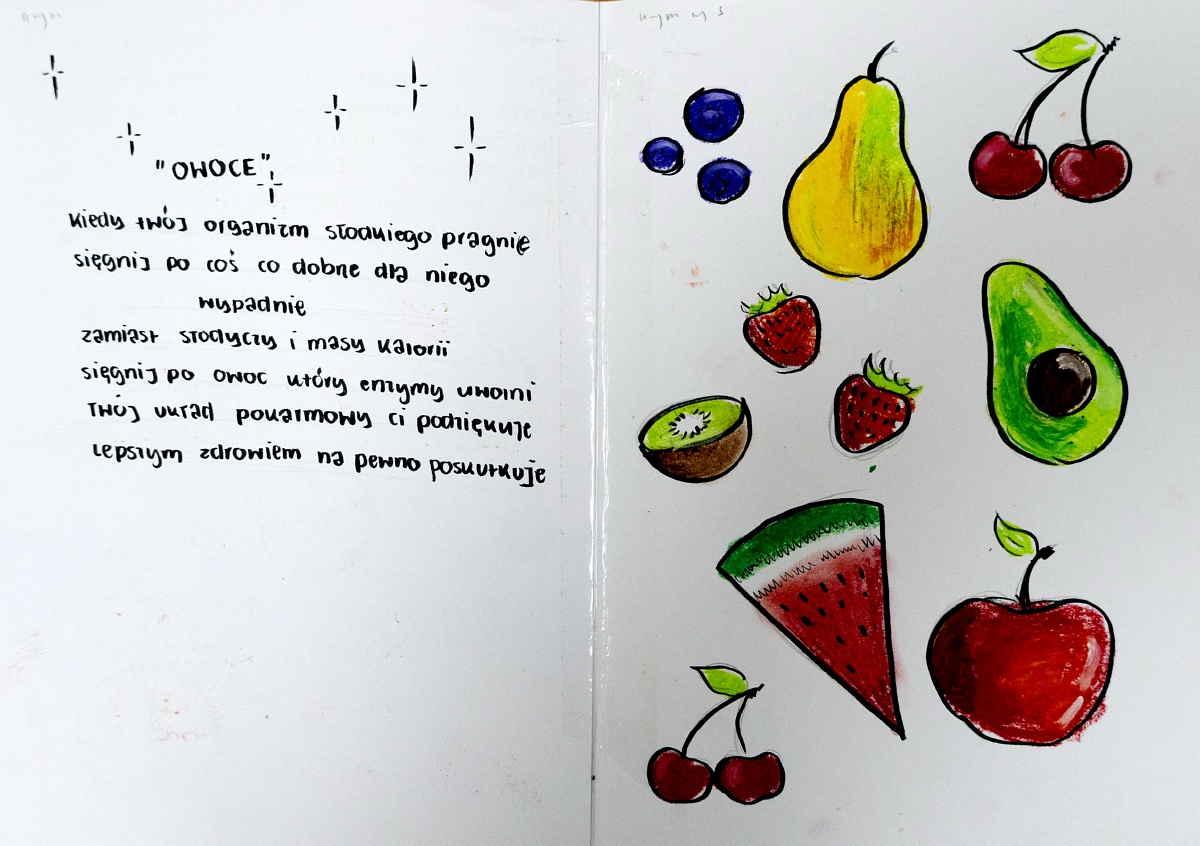 "OWOCE"
kiedy twój organizm słodkiego pragnie
sięgnij po coś co dobre dla niego
wypadnie
zamiast słodyczy i masy kalorii
sięgnij po owoc który enzymy uwolni
Twój układ pokarmowy ci podziękuje
lepszym zdrowiem na pewno poskutkuje